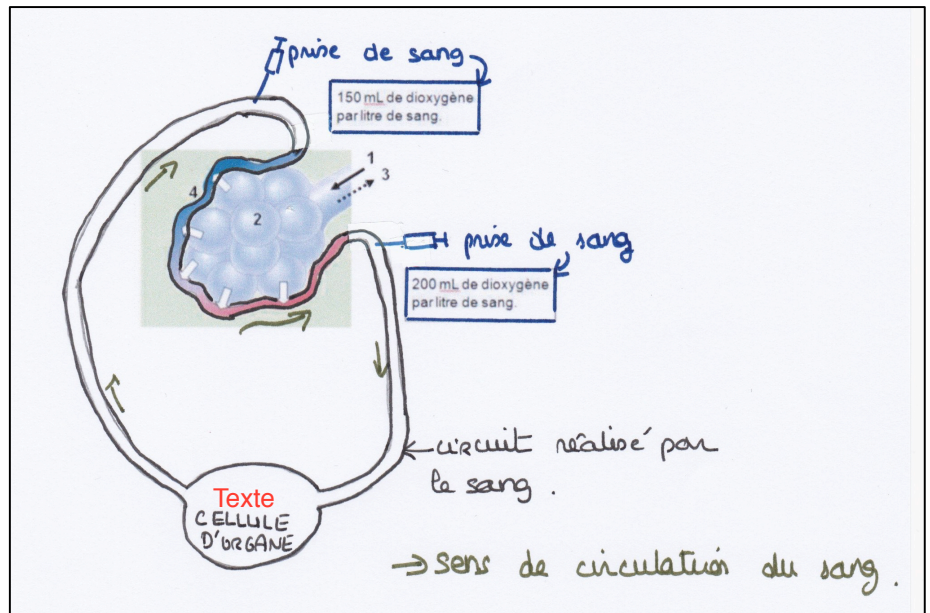 prise de sang
150 mL de dioxygène
par litre de sang.
1
3
4
2
prise de sang
200 mL de dioxygène
par litre de sang.
circuit réalisé par
le sang.
Texte
CELLULE
D'ORGANE
→ sens de circulation du sang.